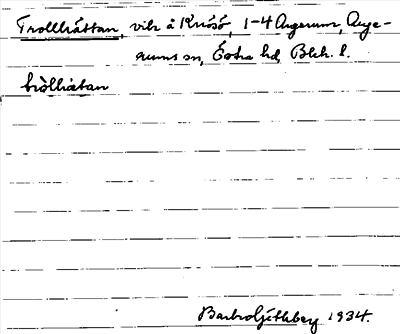 Trollhättan, vik å Knösö, 1-4 Augerum, Auge-
rums sn, Östra hd, Blek. l.
tròlhàtan
Barbro Ljethberg 1934.